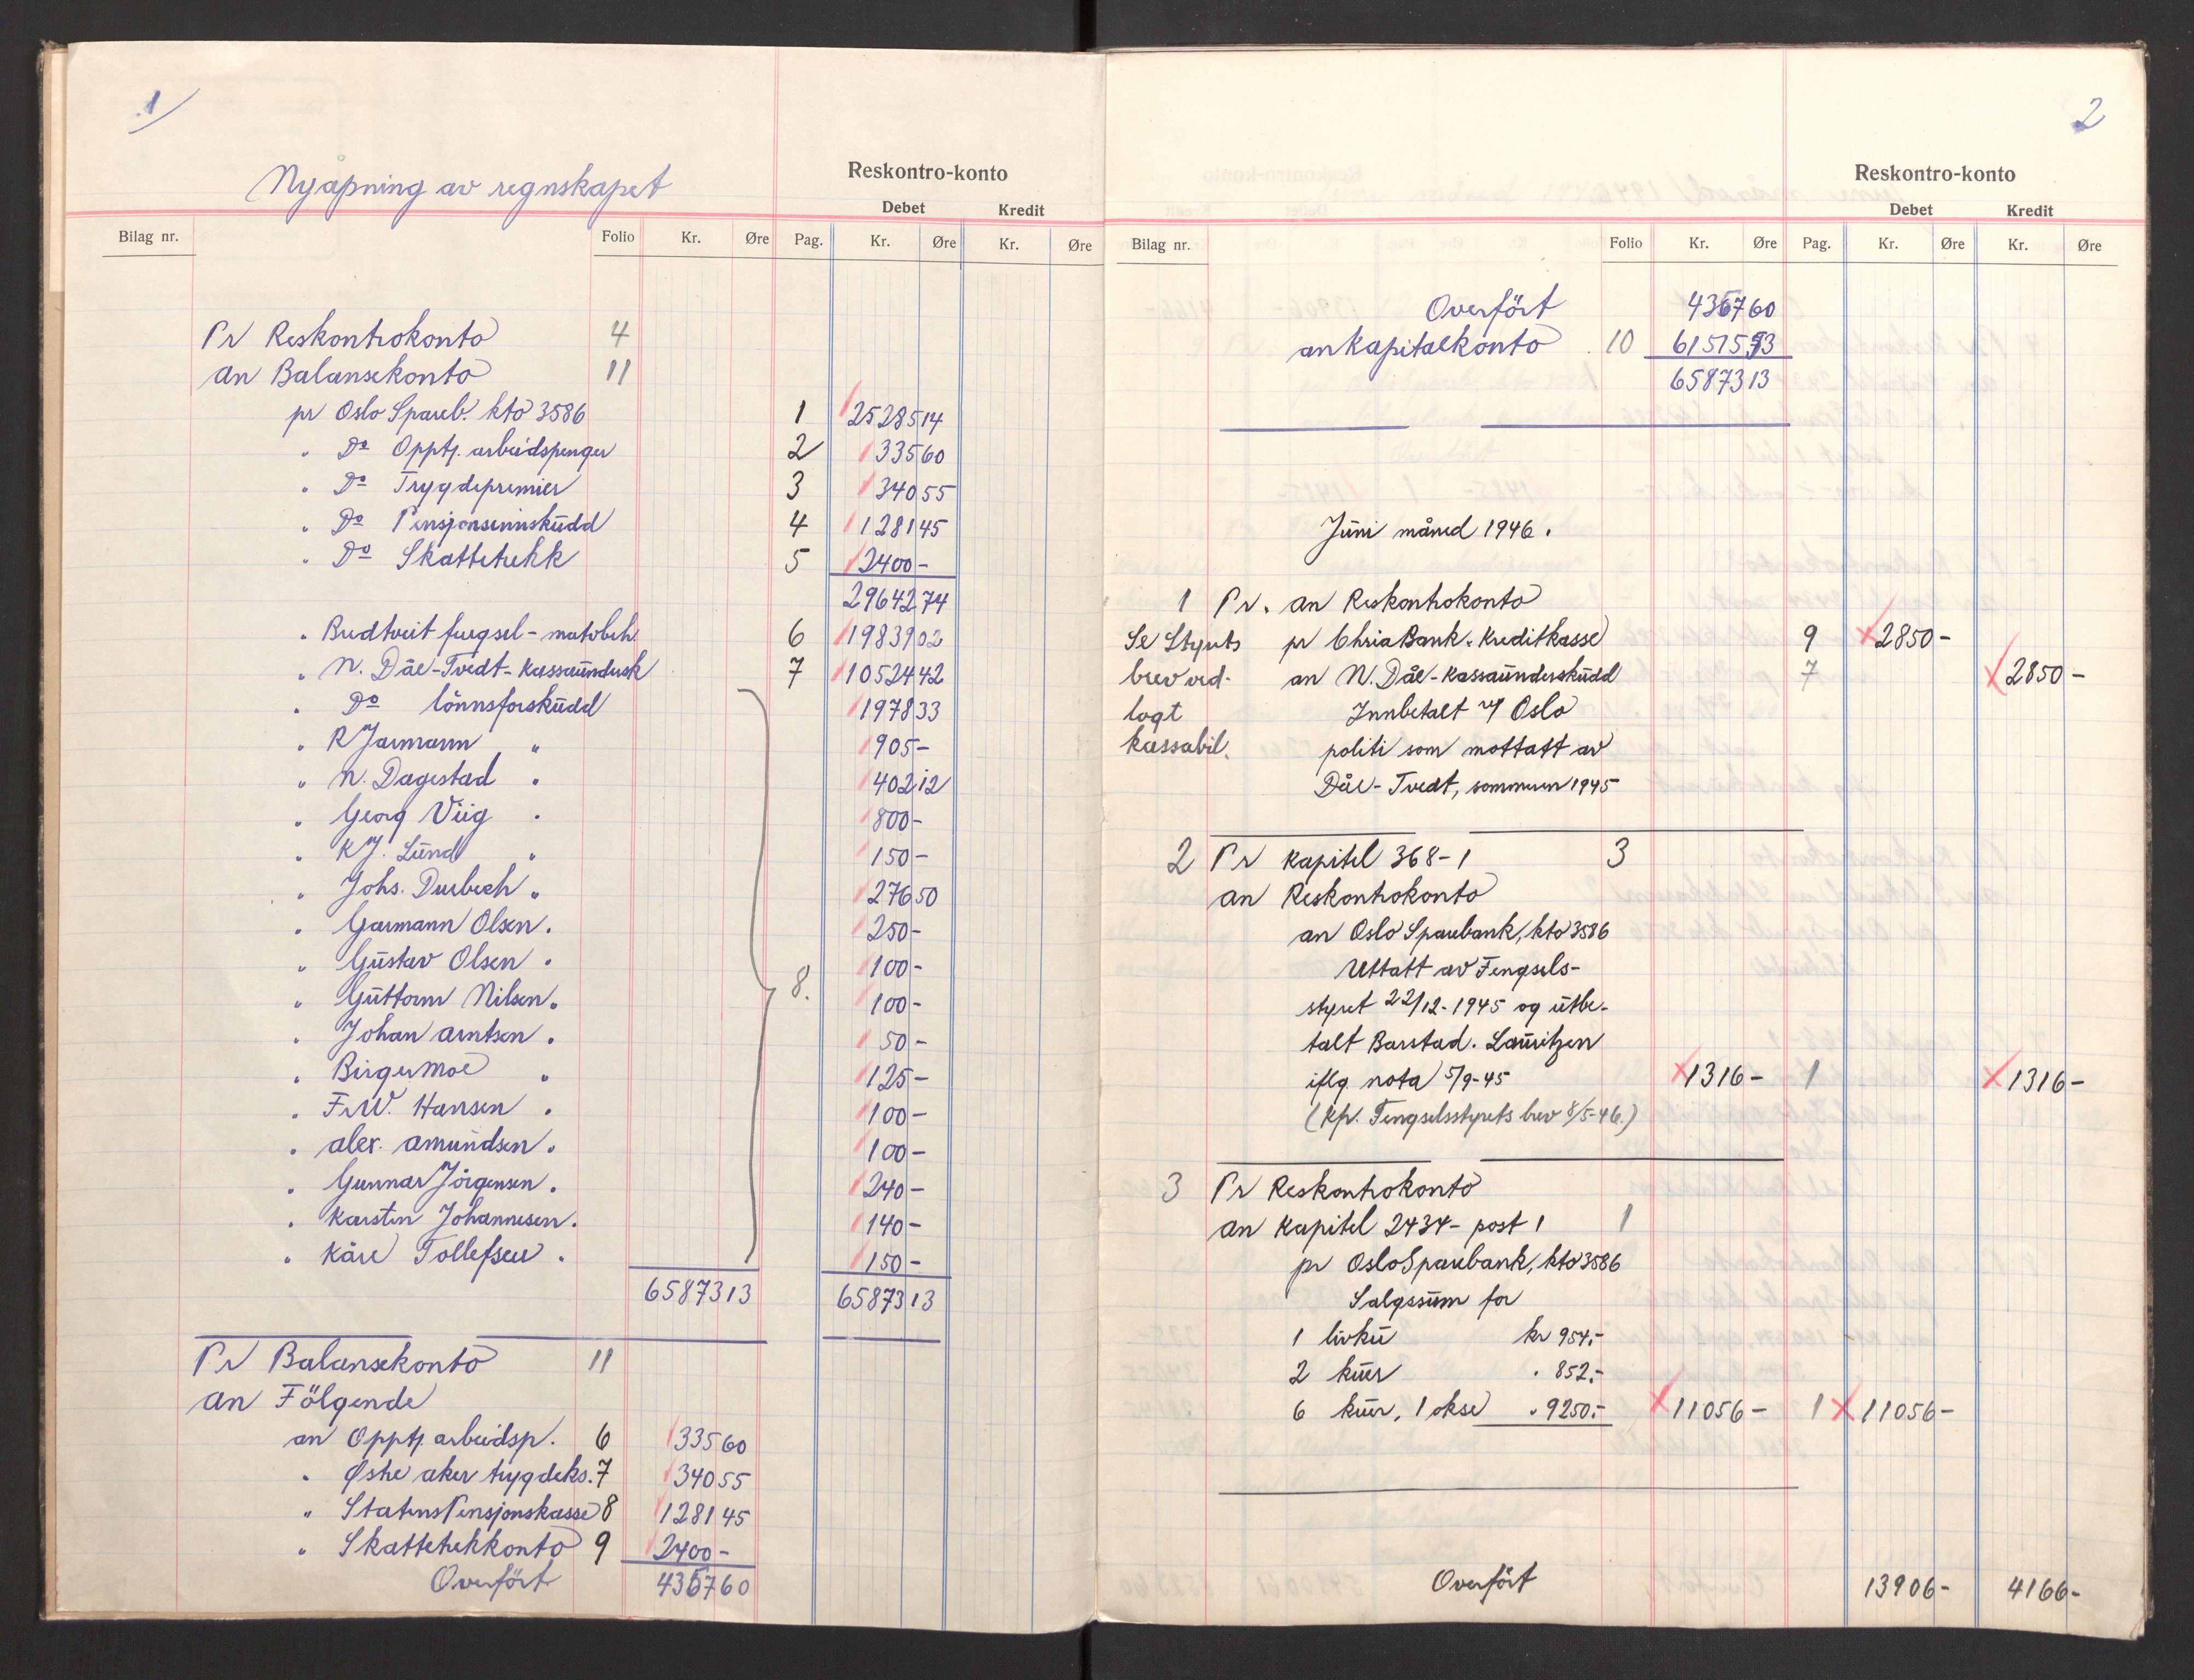 1/
Nyåpning av regnskapet
Reskontro-konto
Debet Kredit
Bilag nr. Folio Kr. Øre Pag. Kr. Øre Kr. Øre
Pr Reskontrokonto 4
an Balansekonto 11
pr Oslo Spareb. kto 3586 1 25285 14
" Do Opptj. arbeidspenger 2 335 60
" Do Trygdepremier 3 340 55
" Do Pensjonsinnskudd 4 1281 45
" Do Skattetrekk 5 2400 -
29642 74
" Bredtveit fengsel - matvbeh. 6 19839 02
" N. Dåe-Tvedt - kassaundersk 7 10524 42
" Do lönnsforskudd 1978 33
" R Jarmann " 905 -
" N. Dagestad " 402 12
" Georg Viig " 800 -
" K J. Lund " 150 -
" Johs. Durbech " 276 50
" Garmann Olsen " 250 -
" Gustav Olsen " 100 -
" Guttorm Nilsen " 8. 100 -
" Johan Arntsen " 50 -
" Birger Moe " 125 -
" Fr.W. Hansen " 100 -
" Alex. Amundsen " 100 -
" Gunnar Jörgensen " 240 -
" Karsten Johannesen " 140 -
" Kåre Tollefsen " 150 -
65873 13 65873 13
Pr Balansekonto 11
an Fölgende
an Opptj. arbeidsp. 6 335 60
" Østre aker trygdeks. 7 340 55
" Statens Pensjonskasse 8 1281 45
" Skattetrekkonto 9 2400 -
Overfört 4357 60
2
Reskontro-konto
Debet Kredit
Bilag nr. Folio Kr. Øre Pag. Kr. Øre Kr. Øre
Overfört 4357 60
an kapitalkonto 10 61515 53
65873 13
Juni måned 1946.
1 Pr. an Reskontrokonto
Se Styrets pr Chria Bank & Kreditkasse 9 2850 -
brev ved- an N. Dåe - kassaunderskudd 7 2850 -
lagt Innbetalt Oslo
kassabil. politi som mottatt av
Dåe - Tvedt, sommeren 1945
2 Pr kapitel 368-1 3
an Reskontrokonto
an Oslo Sparebank, kto 3586
Uttatt av Fengsels-
styret 22/12-1945 og utbe-
talt Barstad. Lauritzen
iflg. nota 5/9-45 1316 - 1 1316 -
(kfr. Fengselsstyrets brev 8/5-46.)
3 Pr Reskontrokonto
an kapitel 2434 - post 1 1
pr Oslo Sparebank, kto 3586
Salgssum for
1 livku kr 954.-
2 kuer " 852.-
6 kuer, 1 okse " 9250.- 11056 - 1 11056 -
Overfört 13906 - 4166 -